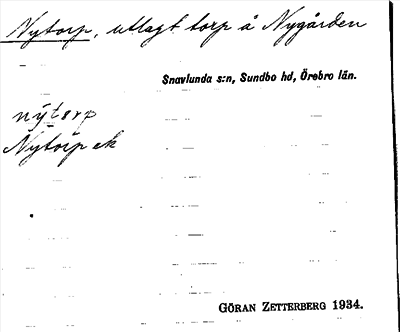 Nytorp, utlagt torp å Nygården
Snavlunda s:n, Sundbo hd, Örebro län.
nýtorp
Nytorp ek
GÖRAN ZETTERBERG 1934.